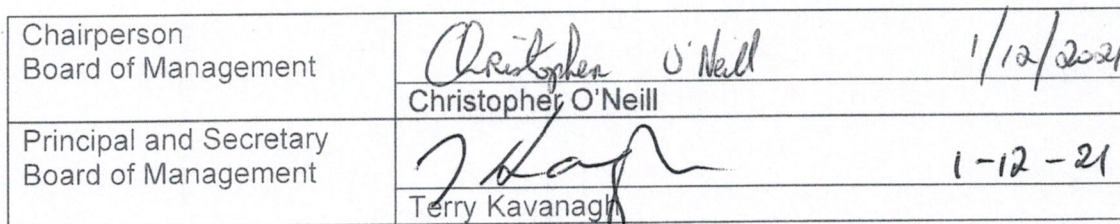 Chairperson
Board of Management
Christopher O'Neill 1/12/2021
Christopher O'Neill
Principal and Secretary
Board of Management
T Kavanagh 1-12-21
Terry Kavanagh